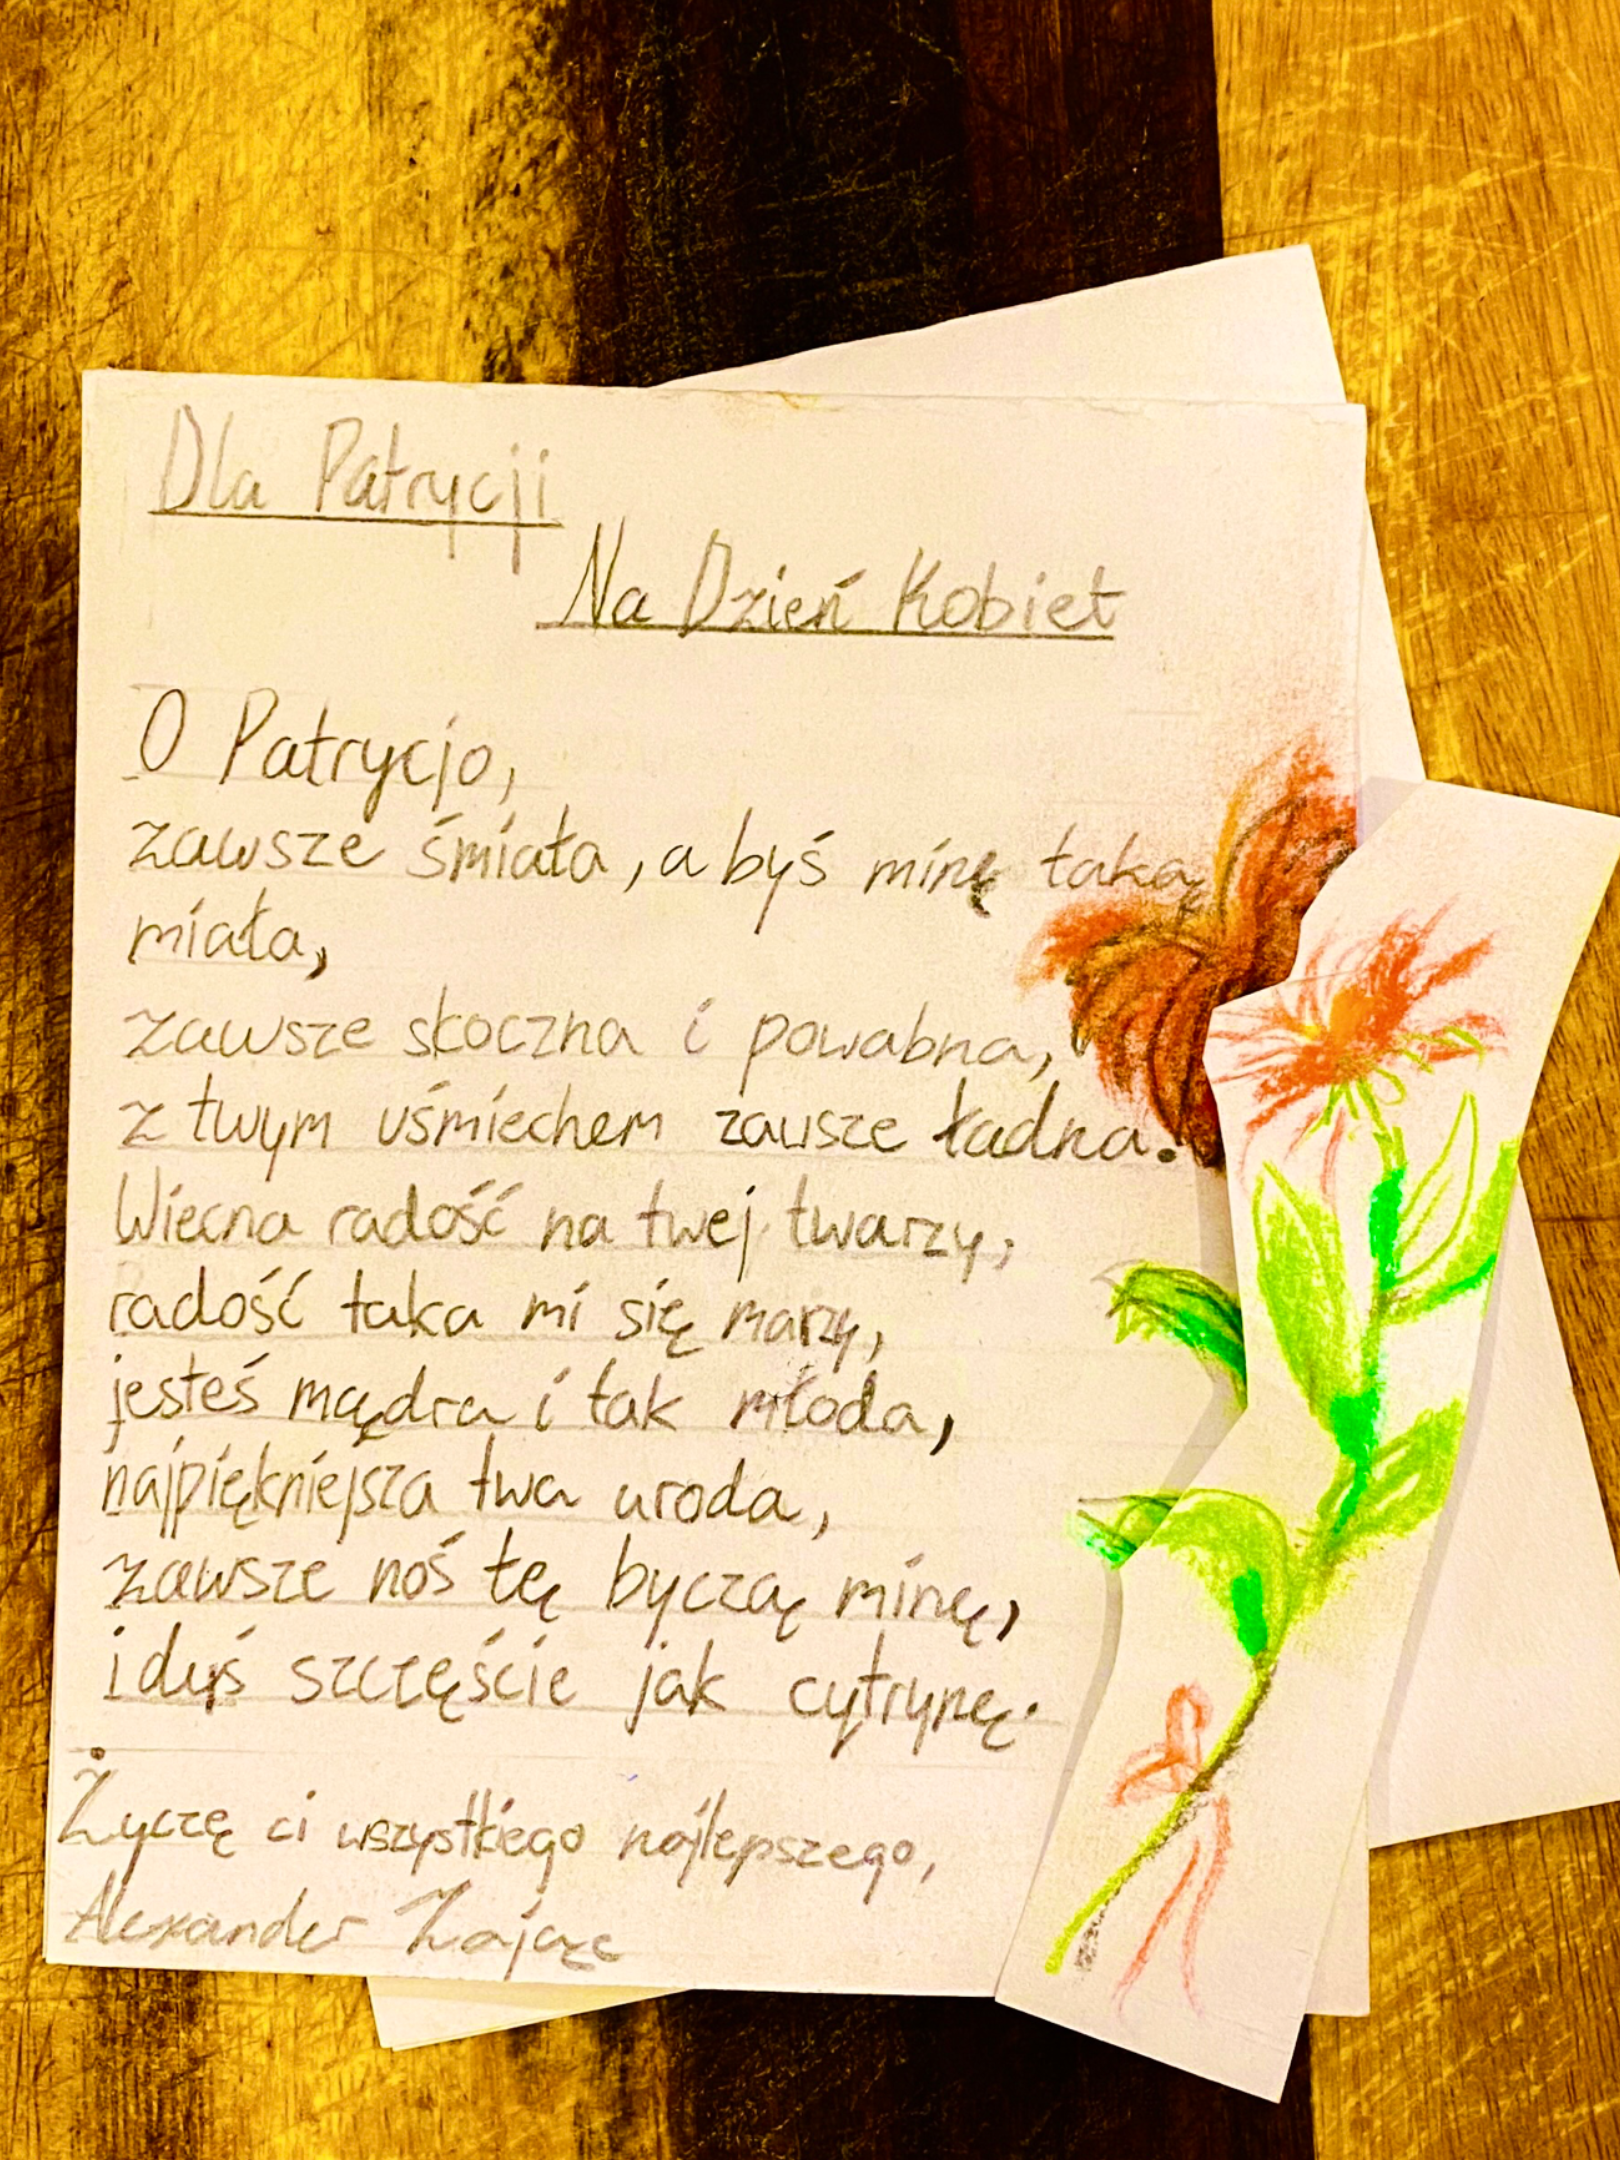 Dla Patrycji
Na Dzień Kobiet
O Patrycjo,
zawsze śmiała, a byś minę taką
miała,
zawsze skoczna i powabna,
z twym uśmiechem zawsze ładna.
Wiecna radość na twej twarzy,
radość taka mi się marzy,
jesteś mądra i tak młoda,
najpiękniejsza twa uroda,
zawsze noś tę byczą minę,
i duś szczęście jak cytrynę.
Życzę ci wszystkiego najlepszego,
Alexander Zając